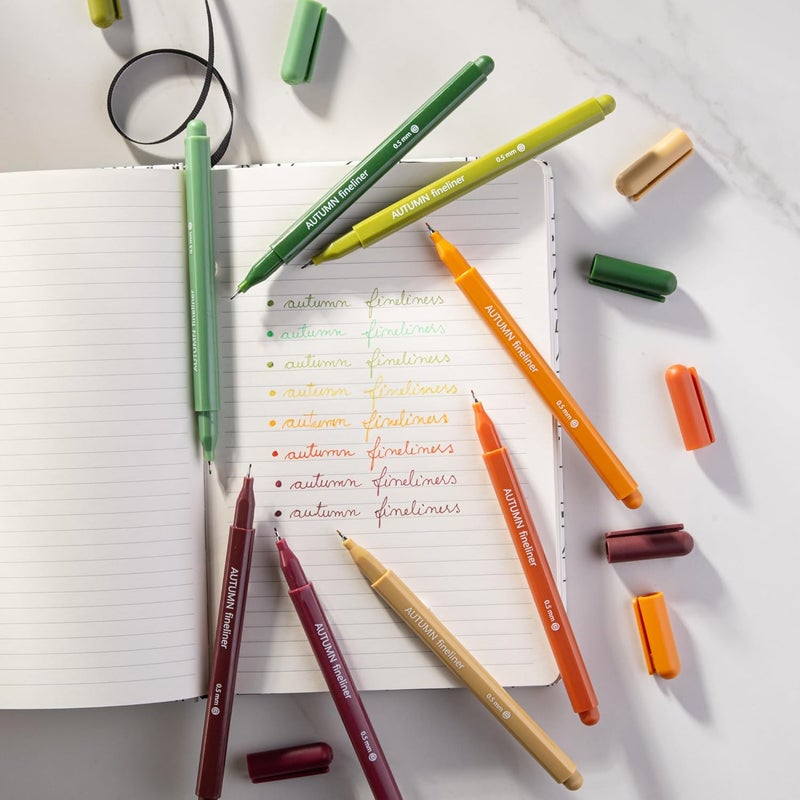 AUTUMN fineliner 0.5 mm
AUTUMN fineliner 0.5 mm
AUTUMN fineliner 0.5 mm
AUTUMN fineliner 0.5 mm
autumn fineliners
autumn fineliners
autumn fineliners
autumn fineliners
autumn fineliners
autumn fineliners
autumn fineliners
autumn fineliners
AUTUMN fineliner 0.5 mm
AUTUMN fineliner 0.5 mm
AUTUMN fineliner 0.5 mm
AUTUMN fineliner 0.5 mm